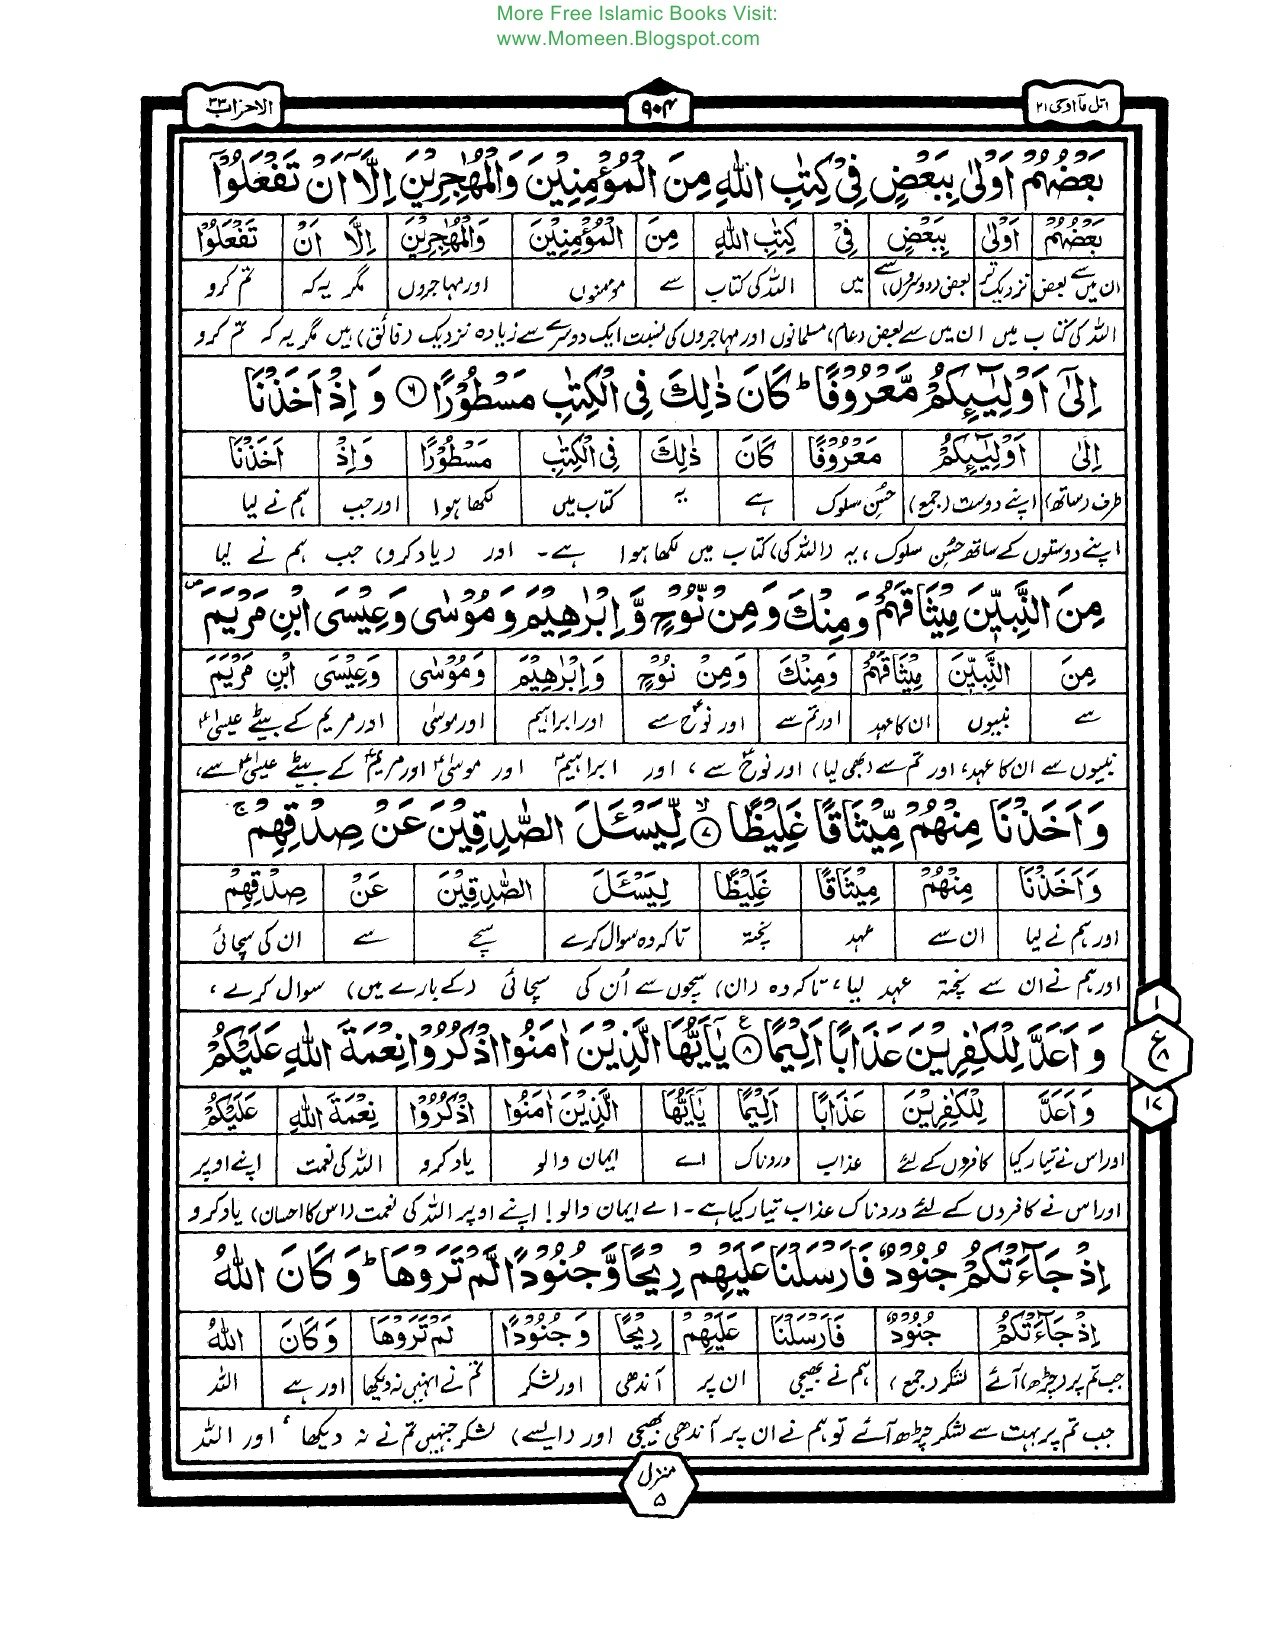 More Free Islamic Books Visit:
www.Momeen.Blogspot.com
اتل مآ اوحی ۲۱ ۹۰۴ الاحزاب ۳۳
بَعْضُهُمْ اَوْلٰی بِبَعْضٍ فِیْ كِتٰبِ اللّٰهِ مِنَ الْمُؤْمِنِیْنَ وَالْمُهٰجِرِیْنَ اِلَّاۤ اَنْ تَفْعَلُوْۤا
بَعْضُهُمْ اَوْلٰی بِبَعْضٍ فِیْ كِتٰبِ اللّٰهِ مِنَ الْمُؤْمِنِیْنَ وَالْمُهٰجِرِیْنَ اِلَّاۤ اَنْ تَفْعَلُوْۤا
ان میں سے بعض نزدیک تر بعض (دوسروں) سے میں اللہ کی کتاب سے مومنوں اور مہاجروں مگر یہ کہ تم کرو
اللہ کی کتاب میں ان میں سے بعض (عام) مسلمانوں اور مہاجروں کی نسبت ایک دوسرے سے زیادہ نزدیک (فائق) ہیں مگر یہ کہ تم کرو
اِلٰۤی اَوْلِیٰٓىِٕكُمْ مَّعْرُوْفًا ؕ كَانَ ذٰلِكَ فِی الْكِتٰبِ مَسْطُوْرًا ۶ وَ اِذْ اَخَذْنَا
اِلٰۤی اَوْلِیٰٓىِٕكُمْ مَعْرُوْفًا كَانَ ذٰلِكَ فِی الْكِتٰبِ مَسْطُوْرًا وَاِذْ اَخَذْنَا
طرف (ساتھ) اپنے دوست (جمع) حسن سلوک ہے یہ کتاب میں لکھا ہوا اور جب ہم نے لیا
اپنے دوستوں کے ساتھ حسن سلوک، یہ (اللہ کی) کتاب میں لکھا ہوا ہے۔ اور (یاد کرو) جب ہم نے لیا
مِنَ النَّبِیّٖنَ مِیْثَاقَهُمْ وَمِنْكَ وَمِنْ نُّوْحٍ وَّاِبْرٰهِیْمَ وَمُوْسٰی وَعِیْسَی ابْنِ مَرْیَمَ ۪
مِنَ النَّبِیّٖنَ مِیْثَاقَهُمْ وَمِنْكَ وَمِنْ نُوْحٍ وَاِبْرٰهِیْمَ وَمُوْسٰی وَعِیْسَی ابْنِ مَرْیَمَ
سے نبیوں ان کا عہد اور تم سے اور نوحؑ سے اور ابراہیم اور موسیٰ اور مریم کے بیٹے عیسیٰؑ
نبیوں سے ان کا عہد، اور تم سے (بھی لیا) اور نوحؑ سے، اور ابراہیمؑ اور موسیٰؑ اور مریمؑ کے بیٹے عیسیٰؑ سے،
وَاَخَذْنَا مِنْهُمْ مِّیْثَاقًا غَلِیْظًا ۙ ۷ لِّیَسْـَٔلَ الصّٰدِقِیْنَ عَنْ صِدْقِهِمْ ۚ
وَاَخَذْنَا مِنْهُمْ مِیْثَاقًا غَلِیْظًا لِیَسْـَٔلَ الصّٰدِقِیْنَ عَنْ صِدْقِهِمْ
اور ہم نے لیا ان سے عہد پختہ تاکہ وہ سوال کرے سچے سے ان کی سچائی
اور ہم نے ان سے پختہ عہد لیا، تاکہ وہ (ان) سچوں سے اُن کی سچائی (کے بارے میں) سوال کرے،
وَ اَعَدَّ لِلْكٰفِرِیْنَ عَذَابًا اَلِیْمًا ۸ یٰۤاَیُّهَا الَّذِیْنَ اٰمَنُوا اذْكُرُوْا نِعْمَةَ اللّٰهِ عَلَیْكُمْ
۱ ع ۸ ۱۷
وَاَعَدَّ لِلْكٰفِرِیْنَ عَذَابًا اَلِیْمًا یٰۤاَیُّهَا الَّذِیْنَ اٰمَنُوا اذْكُرُوْا نِعْمَةَ اللّٰهِ عَلَیْكُمْ
اور اس نے تیار کیا کافروں کے لئے عذاب دردناک اے ایمان والو یاد کرو اللہ کی نعمت اپنے اوپر
اور اس نے کافروں کے لئے دردناک عذاب تیار کیا ہے۔ اے ایمان والو! اپنے اوپر اللہ کی نعمت (اس کا احسان) یاد کرو
اِذْ جَآءَتْكُمْ جُنُوْدٌ فَاَرْسَلْنَا عَلَیْهِمْ رِیْحًا وَّجُنُوْدًا لَّمْ تَرَوْهَا ؕ وَكَانَ اللّٰهُ
اِذْ جَآءَتْكُمْ جُنُوْدٌ فَاَرْسَلْنَا عَلَیْهِمْ رِیْحًا وَجُنُوْدًا لَمْ تَرَوْهَا وَكَانَ اللّٰهُ
جب تم پر (چڑھ) آئے لشکر (جمع) ہم نے بھیجی ان پر آندھی اور لشکر تم نے انہیں نہ دیکھا اور ہے اللہ
جب تم پر بہت سے لشکر چڑھ آئے تو ہم نے ان پر آندھی بھیجی اور (ایسے) لشکر جنہیں تم نے نہ دیکھا، اور اللہ
منزل ۵